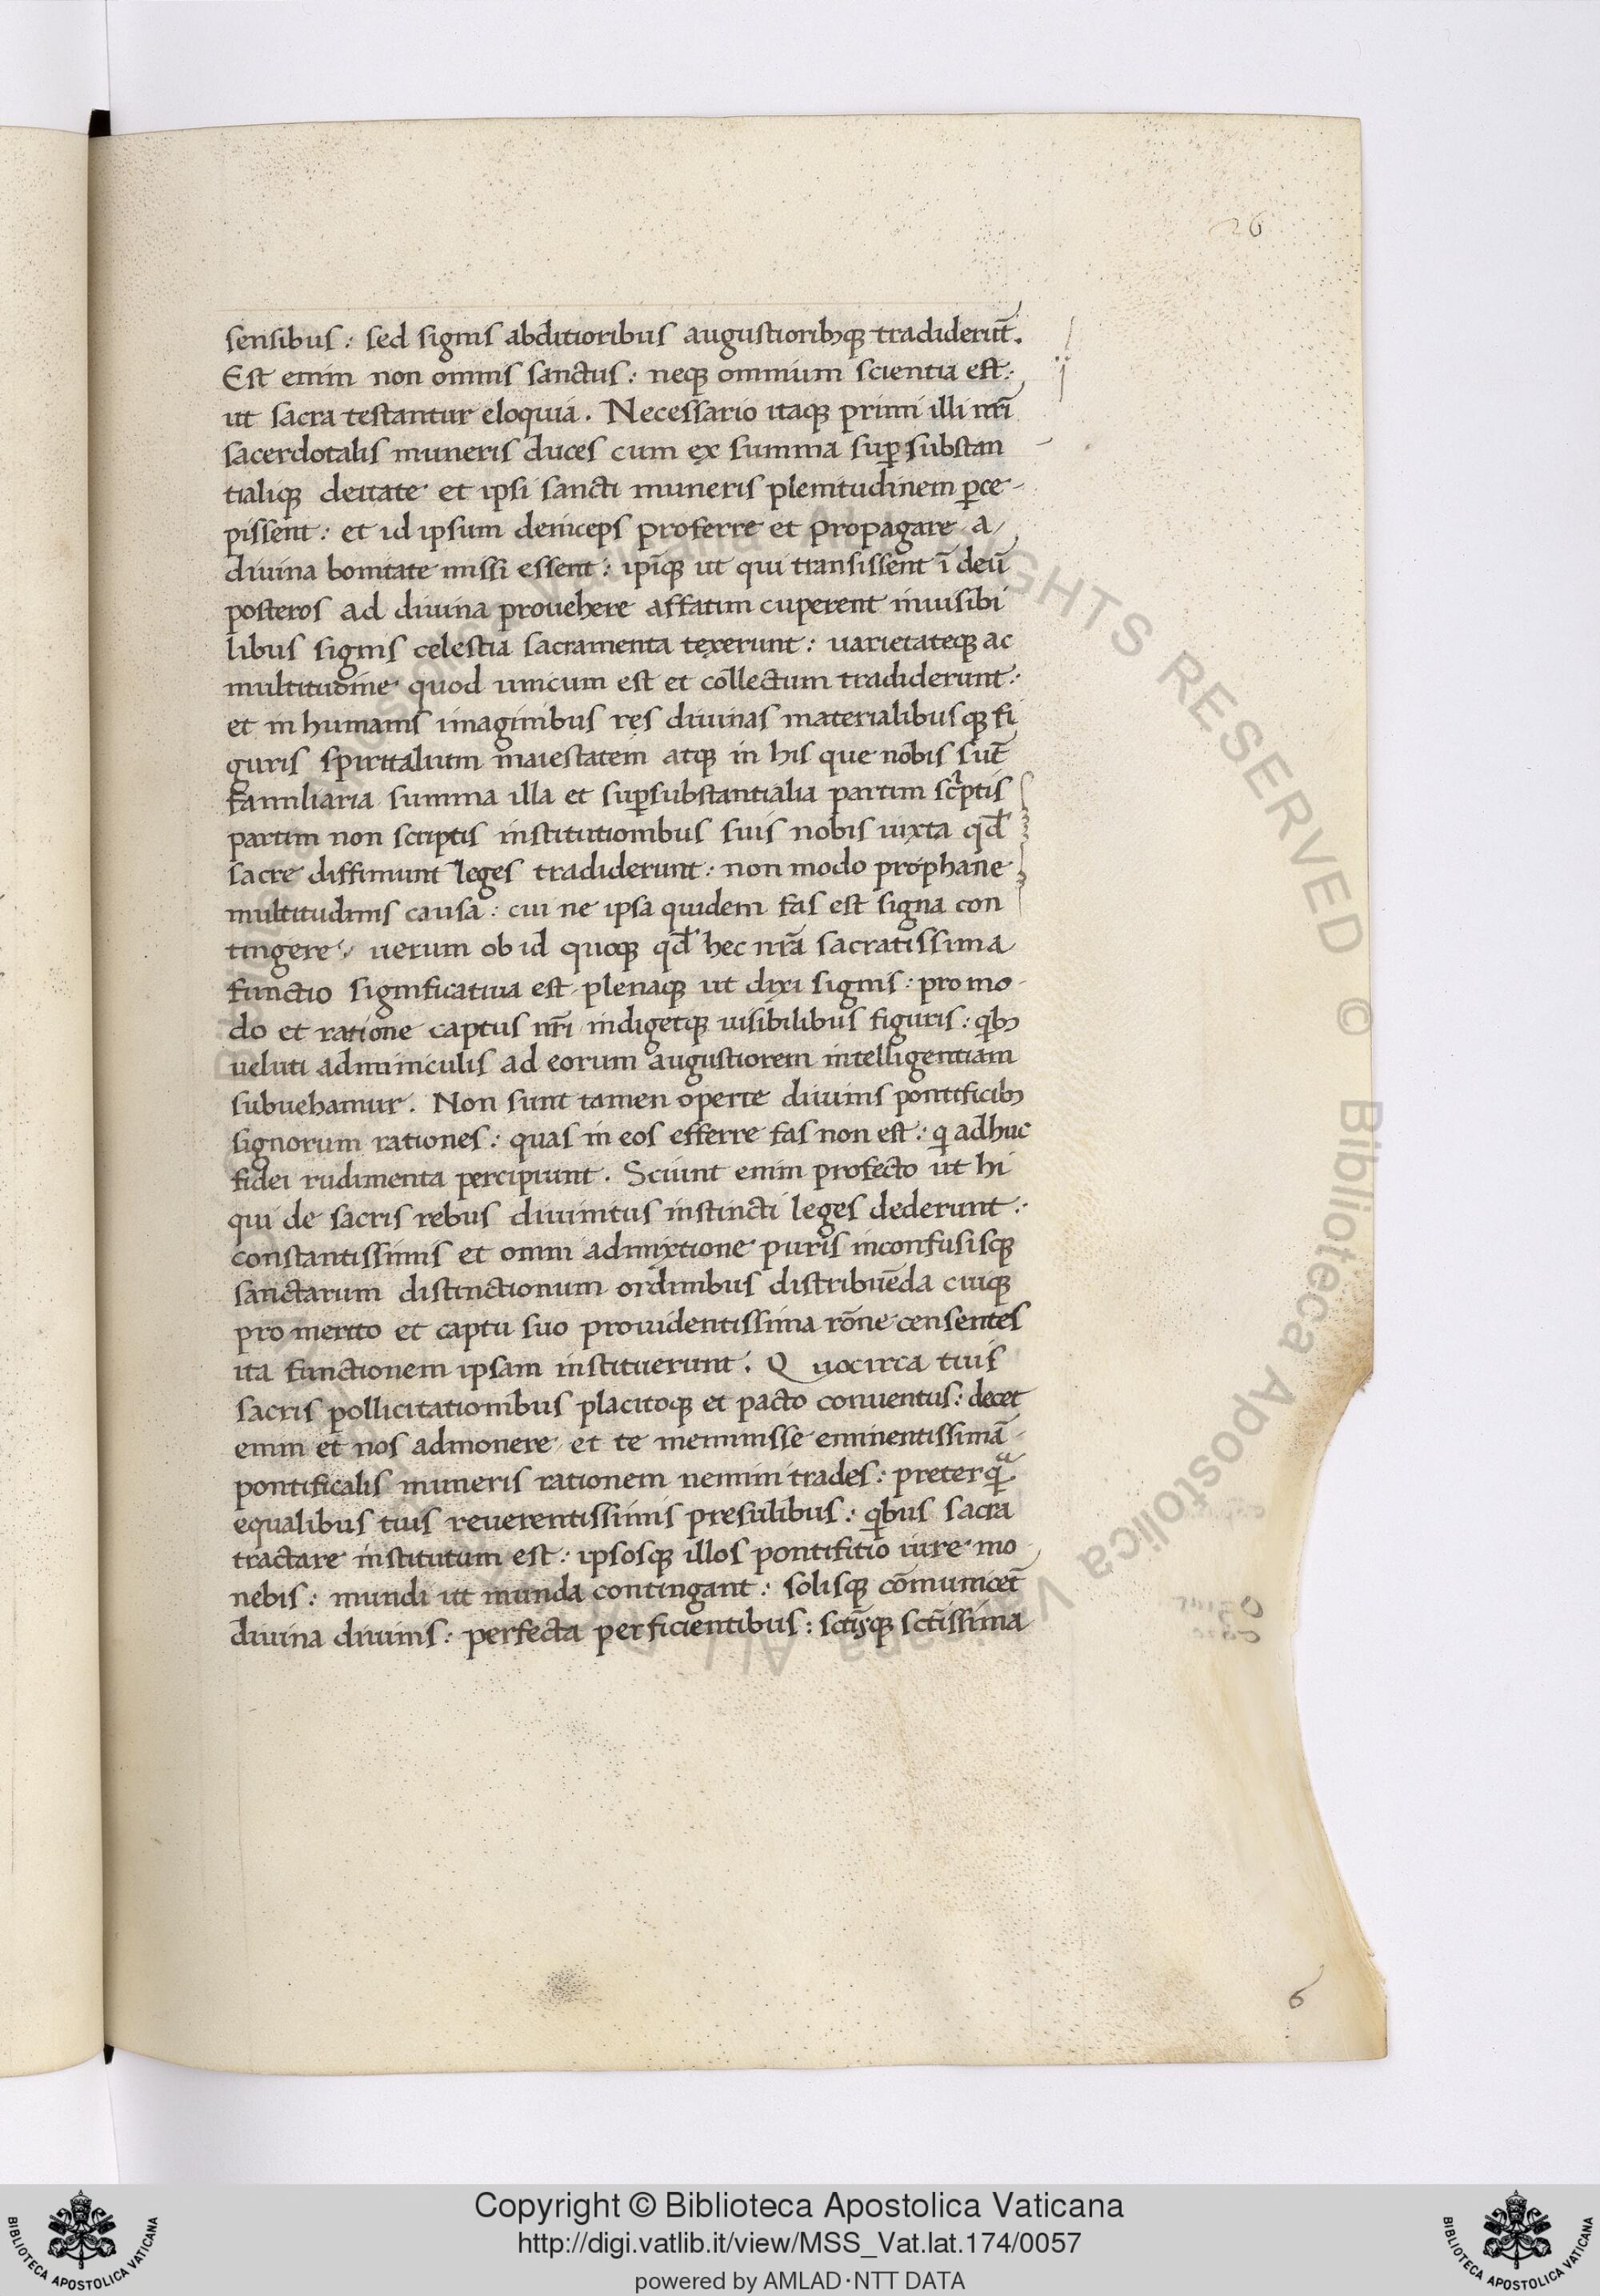 26
sensibus: sed signis abditioribus augustioribꝫqꝫ tradiderūt.
Est enim non omnis sanctus: neqꝫ omnium scientia est:
ut sacra testantur eloquia. Necessario itaqꝫ primi illi nr̄i
sacerdotalis muneris duces cum ex summa suꝑsubstan
tialiqꝫ deitate et ipsi sancti muneris plenitudinem ꝑce-
pissent: et id ipsum deniceps proferre et propagare a
diuina bonitate missi essent: ipīqꝫ ut qui transissent ī deū
posteros ad diuina prouehere affatim cuperent inuisibi
libus signis celestia sacramenta texerunt: uarietateqꝫ ac
multitudine quod unicum est et collectum tradiderunt:
et in humanis imaginibus res diuinas materialibusqꝫ fi
guris spiritalium maiestatem atqꝫ in his que nobis sūt
familiaria summa illa et suꝑsubstantialia partim scͥptis
partim non scriptis institutionibus suis nobis iuxta qd̄
sacre diffiniunt leges tradiderunt: non modo prophane
multitudinis causa: cui ne ipsa quidem fas est signa con
tingere: uerum ob id quoqꝫ qd̄ hec nr̄a sacratissima
functio significatiua est plenaqꝫ ut dixi signis: pro mo-
do et ratione captus nr̄i indigetqꝫ uisibilibus figuris: qͥbꝫ
ueluti adminiculis ad eorum augustiorem intelligentiam
subuehamur. Non sunt tamen operte diuinis pontificibꝫ
signorum rationes: quas in eos efferre fas non est: qͥ adhuc
fidei rudimenta percipiunt. Sciunt enim profecto ut hi
qui de sacris rebus diuinitus instincti leges dederunt:
constantissimis et omni admixtione puris inconfusisqꝫ
sanctarum distinctionum ordinibus distribuēda cuiqꝫ
pro merito et captu suo prouidentissima rōne censentes
ita functionem ipsam instituerunt. Quocirca tuis
sacris pollicitationibus placitoqꝫ et pacto conuentus: decet
enim et nos admonere et te meminisse eminentissimā
pontificalis muneris rationem nemini trades: preterqͣ
equalibus tuis reuerentissimis presulibus: qͥbus sacra
tractare institutum est: ipsosqꝫ illos pontifitio iure mo
nebis: mundi ut munda contingant: solisqꝫ cōmunicet̄
diuina diuinis: perfecta perficientibus: sctīsqꝫ sctīssima
6
Copyright © Biblioteca Apostolica Vaticana
http://digi.vatlib.it/view/MSS_Vat.lat.174/0057
powered by AMLAD·NTT DATA
BIBLIOTECA APOSTOLICA VATICANA
BIBLIOTECA APOSTOLICA VATICANA